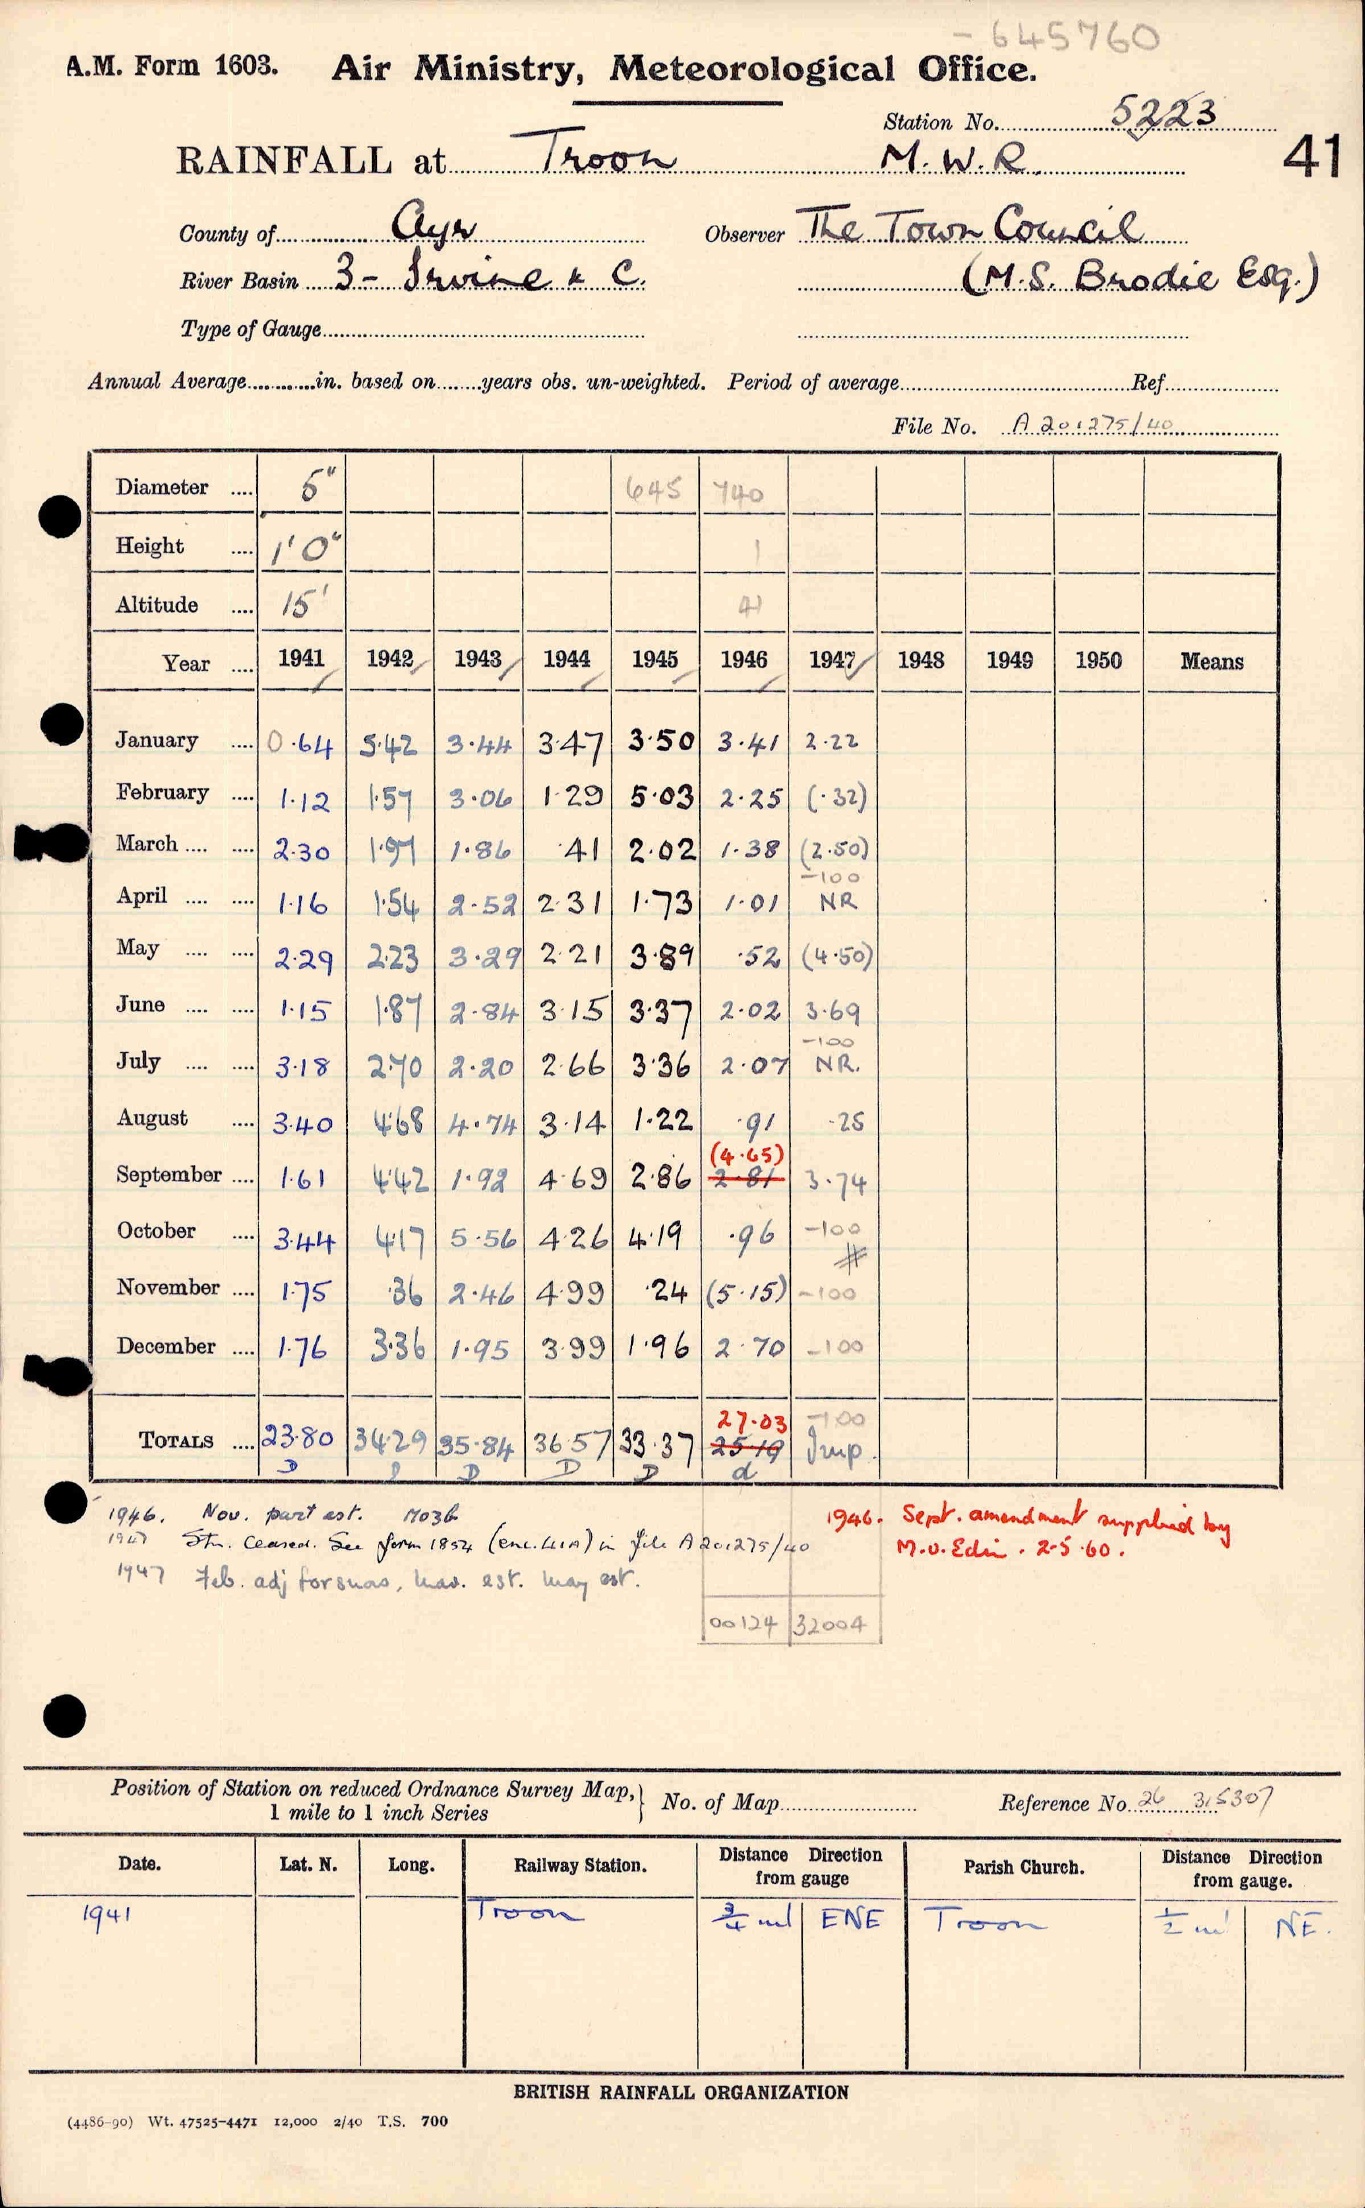 - 645760
A.M. Form 1603. Air Ministry, Meteorological Office.
Station No. 5223
RAINFALL at Troon M.W.R. 41
County of Ayr Observer The Town Council
River Basin 3 - Irvine & C. (M.S. Brodie Esq.)
Type of Gauge
Annual Average in. based on years obs. un-weighted. Period of average Ref
File No. A 201275/40
Diameter 5" 645 740
Height 1' 0" 1
Altitude 15' 41
Year 1941 1942 1943 1944 1945 1946 1947 1948 1949 1950 Means
January 0.64 5.42 3.44 3.47 3.50 3.41 2.22
February 1.12 1.57 3.06 1.29 5.03 2.25 (.32)
March 2.30 1.97 1.86 .41 2.02 1.38 (2.50)
-100
April 1.16 1.54 2.52 2.31 1.73 1.01 NR
May 2.29 2.23 3.29 2.21 3.89 .52 (4.50)
June 1.15 1.87 2.84 3.15 3.37 2.02 3.69
-100
July 3.18 2.70 2.20 2.66 3.36 2.07 NR.
August 3.40 4.68 4.74 3.14 1.22 .91 .25
(4.65)
September 1.61 4.42 1.92 4.69 2.86 2.81 3.74
October 3.44 4.17 5.56 4.26 4.19 .96 -100
#
November 1.75 .36 2.46 4.99 .24 (5.15) -100
December 1.76 3.36 1.95 3.99 1.96 2.70 -100
27.03 -100
TOTALS 23.80 34.29 35.84 36.57 33.37 25.19 Imp.
D D D D D d
1946. Nov. part est. M036 1946. Sept. amendment supplied by
1947 Stn. ceased. See form 1854 (enc. 41A) in file A201275/40 M.O. Edin. 2-5-60.
1947 Feb. adj for snow, Mar. est. May est.
00124 32004
Position of Station on reduced Ordnance Survey Map,
1 mile to 1 inch Series } No. of Map Reference No. 26 315307
Date. Lat. N. Long. Railway Station. Distance Direction from gauge Parish Church. Distance Direction from gauge.
1941 Troon 3/4 ml ENE Troon 1/2 ml NE.
BRITISH RAINFALL ORGANIZATION
(4486-90) Wt. 47525-4471 12,000 2/40 T.S. 700